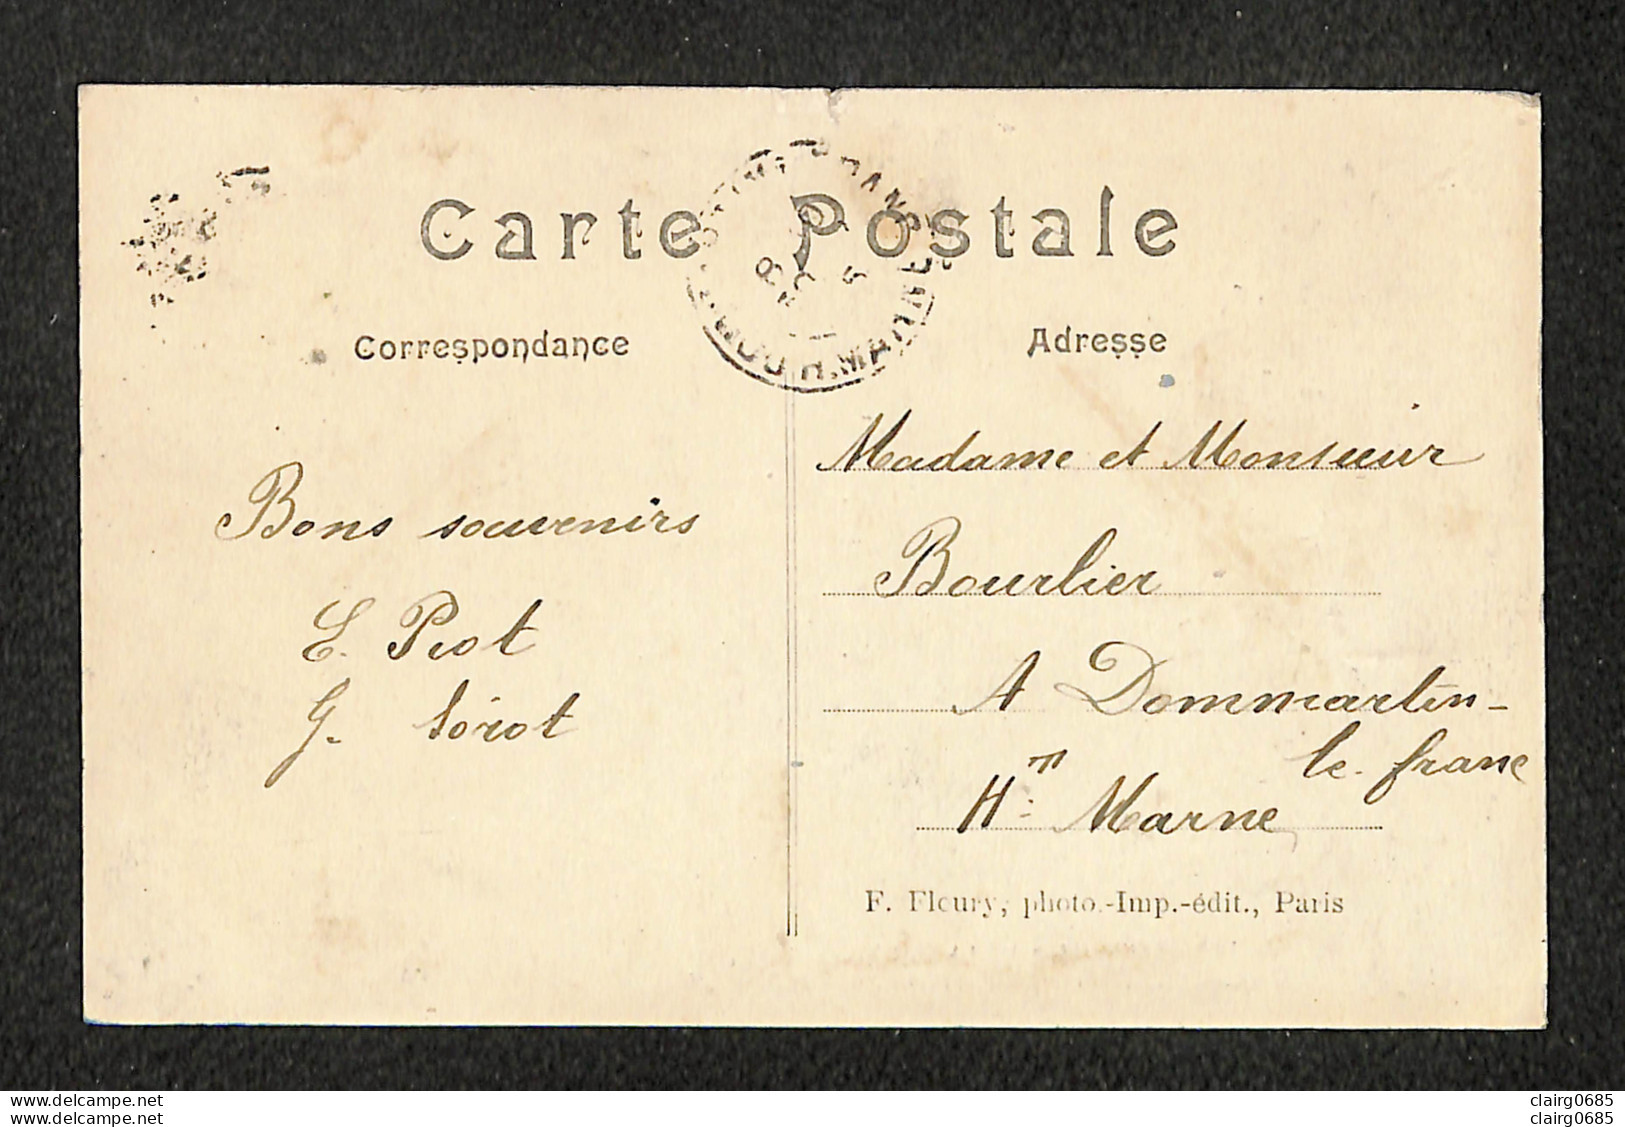 Carte Postale
Correspondance
Adresse
Bons souvenirs
E. Piot
G.
Madame et Monsieur
Bourlier
A Dommartin-
le-franc
Hte Marne
F. Fleury, photo.-Imp.-édit., Paris
H. MARNE
www.delcampe.net
www.delcampe.net
clairg0685
clairg0685